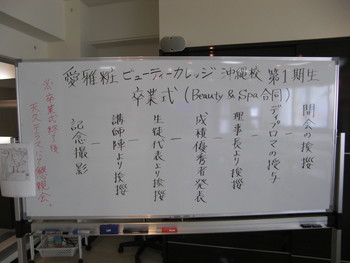 愛雅粧 ビューティーカレッジ 沖縄校 第1期生
卒業式 (Beauty & Spa 合同)
開会の挨拶
ー
ディプロマの授与
ー
理事長より挨拶
ー
成績優秀者発表
ー
生徒代表より挨拶
ー
講師陣より挨拶
ー
記念撮影